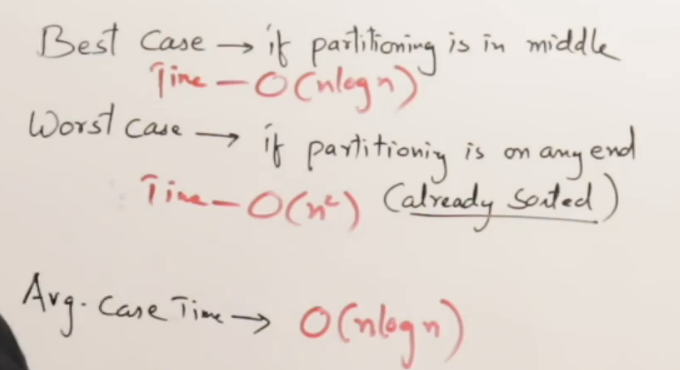 Best Case → if partitioning is in middle
Time – O(nlogn)
Worst case → if partitioniy is on any end
Time – O(n²) (already sorted)
Avg. Case Time → O(nlogn)